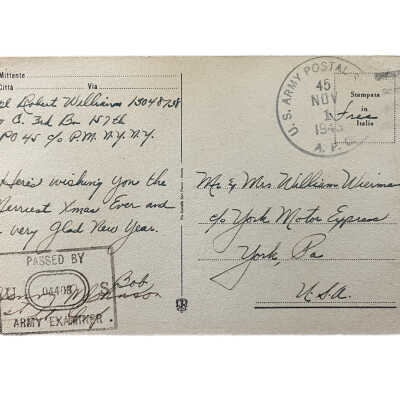 Mittente
Città Via
Robert Williams 15048758
C. 3rd Bn 157th
PO 45 c/o P.M. N.Y. N.Y.
Here's wishing you the
Merriest Xmas Ever and
very Glad New Year.
Bob
PASSED BY
U 04408 S
ARMY EXAMINER
U. S. ARMY POSTAL
45
NOV
1
1943
A. P.
Free
Stampata
in
Italia
Mr. & Mrs William Wierman
c/o York Motor Express
York, Pa
U.S.A.